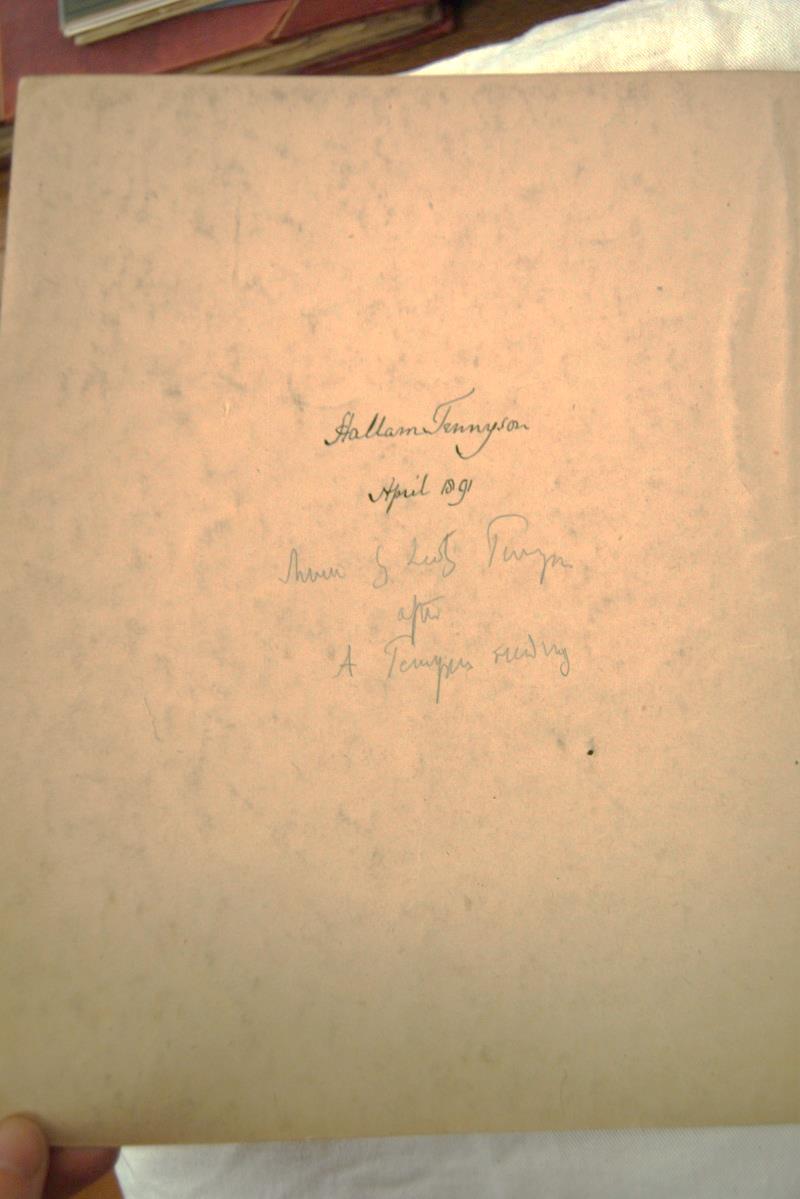 Hallam Tennyson
April 1891
by Lady Tennyson
after
A Tennyson reading